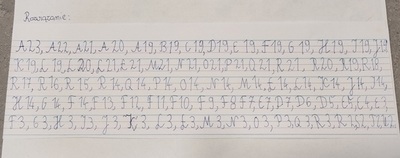 Rozwiązanie:
A23, A22, A21, A20, A19, B19, C19, D19, E19, F19, G19, H19, I19, J19
K19, L19, L20, L21, M21, N21, O21, P21, Q21, R21, R20, R19, R18,
R17, R16, R15, R14, Q14, P14, O14, N14, M14, L14, K14, J14, I14,
H14, G14, F14, F13, F12, F11, F10, F9, F8, F7, E7, D7, D6, D5, E5, E4, E3,
F3, G3, H3, I3, J3, K3, L3, M3, N3, O3, P3, Q3, R3, R2